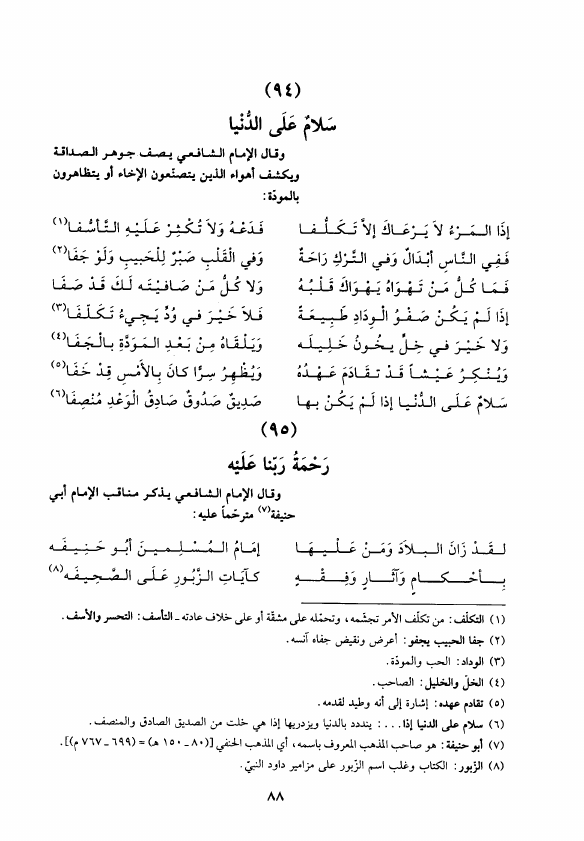 (٩٤)
سَلامٌ عَلَى الدُّنْيا
وقال الإمام الشافعي يصف جوهر الصداقة
ويكشف أهواء الذين يتصنّعون الإخاء أو يتظاهرون
بالمودّة:
إذَا الـمَـرْءُ لا يَـرْعَـاكَ إلاَّ تَـكَـلُّـفـا فَـدَعْـهُ وَلاَ تُـكْـثِـرْ عَـلَـيْـهِ الـتَّـأَسُّـفـا(١)
فَـفِـي النَّـاسِ أبْـدَالٌ وَفـي الـتَّـرْكِ رَاحَـةٌ وَفي الْقَلْبِ صَبْرٌ لِلْحَبِيبِ وَلَوْ جَفَا(٢)
فَـمَـا كُـلُّ مَـنْ تَـهْـوَاهُ يَـهْـوَاكَ قَـلْـبُـهُ وَلا كُـلُّ مَـنْ صَافَيْتَـه لَـكَ قَـدْ صَـفَـا
إذَا لَـمْ يَـكُـنْ صَـفْـوُ الْـوِدَادِ طَـبِـيـعَـةً فَـلاَ خَـيْـرَ في وُدٍّ يَـجِـيءُ تَـكَـلُّـفَـا(٣)
وَلا خَـيْـرَ فـي خِـلٍّ يـخُـونُ خَـلِـيـلَـه وَيَـلْـقَـاهُ مِـنْ بَـعْـدِ الـمَـوَدَّةِ بـالْـجَـفَـا(٤)
وَيُـنْـكِـرُ عَـيْـشـاً قَـدْ تـقَـادَمَ عَـهْـدُهُ وَيُظْهِرُ سِرًّا كانَ بِالأَمْسِ قِدْ خَفَا(٥)
سَـلامٌ عَـلَـى الـدُّنْـيَـا إذَا لَـمْ يَـكُـنْ بـهـا صَدِيقٌ صَدُوقٌ صَادِقُ الْوَعْدِ مُنْصِفَا(٦)
(٩٥)
رَحْمَةُ رَبِّنا عَلَيْه
وقال الإمام الشافعي يذكر مناقب الإمام أبي
حنيفة(٧) مترحّماً عليه:
لـقَـدْ زَانَ الـبـلاَدَ وَمَـنْ عَـلَـيْـهَـا إمَـامُ الـمُـسْـلِـمـيـنَ أبُـو حَـنِـيـفَـه
بِـأَحْـكَـامٍ وَآثَـارٍ وَفِـقْـهٍ كـآيَـاتِ الـزَّبُـورِ عَـلَـى الـصَّـحِـيـفَـه(٨)
(١) التكلّف: من تكلّف الأمر تجشّمه، وتحمّله على مشقّة أو على خلاف عادته ـ التأسف: التحسر والأسف.
(٢) جفا الحبيب يجفو: أعرض ونقيض جفاه آنسه.
(٣) الوداد: الحب والمودّة.
(٤) الخلّ والخليل: الصاحب.
(٥) تقادم عهده: إشارة إلى أنه وطيد لقدمه.
(٦) سلام على الدنيا إذا...: يندد بالدنيا ويزدريها إذا هي خلت من الصديق الصادق والمنصف.
(٧) أبو حنيفة: هو صاحب المذهب المعروف باسمه، أي المذهب الحنفي [(٨٠ ـ ١٥٠ هـ) = (٦٩٩ ـ ٧٦٧ م)].
(٨) الزّبور: الكتاب وغلب اسم الزّبور على مزامير داود النبيّ.
٨٨